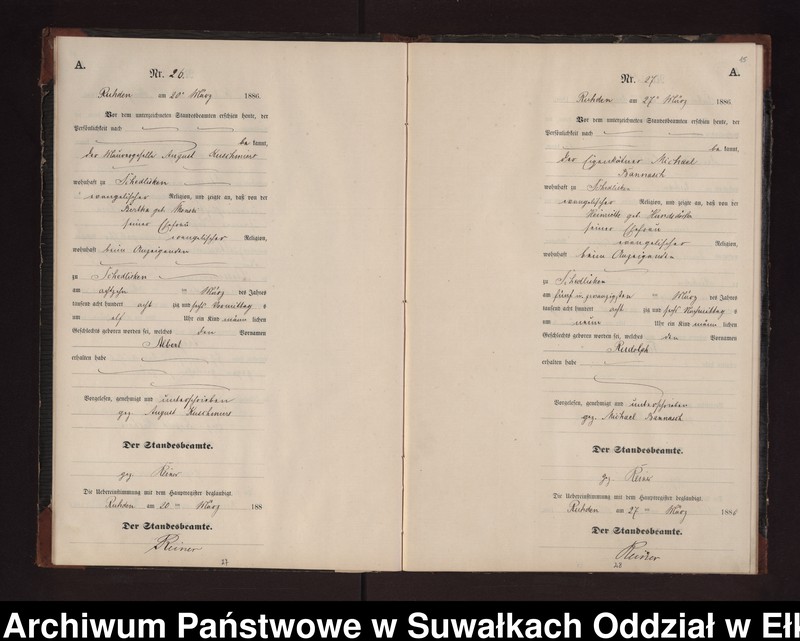 A.
Nr. 26.
Ruhden am 20ᵗ März 1886.
Vor dem unterzeichneten Standesbeamten erschien heute, der
Persönlichkeit nach
be kannt,
der August
wohnhaft zu Schedlisken
evangelischer Religion, und zeigte an, daß von der
Bertha geb.
seiner Ehefrau
evangelischer Religion,
wohnhaft beim Anzeigenden
zu Schedlisken
am achtzehn ten März des Jahres
tausend acht hundert acht zig und sechs Vormittag s
um elf Uhr ein Kind männ lichen
Geschlechts geboren worden sei, welches den Vornamen
Albert
erhalten habe
Vorgelesen, genehmigt und unterschrieben
gez. August
Der Standesbeamte.
gez. Reiner
Die Uebereinstimmung mit dem Hauptregister beglaubigt.
Ruhden am 20 ten März 188
Der Standesbeamte.
Reiner
27
A.
Nr. 27.
Ruhden am 27ᵗ März 1886.
Vor dem unterzeichneten Standesbeamten erschien heute, der
Persönlichkeit nach
be kannt,
der Eigenkätner Michael
Bannasch
wohnhaft zu Schedlisken
evangelischer Religion, und zeigte an, daß von der
Henriette geb.
seiner Ehefrau
evangelischer Religion,
wohnhaft beim Anzeigenden
zu Schedlisken
am fünf und zwanzigsten März des Jahres
tausend acht hundert acht zig und sechs Nachmittag s
um neun Uhr ein Kind männ lichen
Geschlechts geboren worden sei, welches den Vornamen
Rudolph
erhalten habe
Vorgelesen, genehmigt und unterschrieben
gez. Michael Bannasch
Der Standesbeamte.
gez. Reiner
Die Uebereinstimmung mit dem Hauptregister beglaubigt.
Ruhden am 27 ten März 1886
Der Standesbeamte.
Reiner
28
Archiwum Państwowe w Suwałkach Oddział w Eł